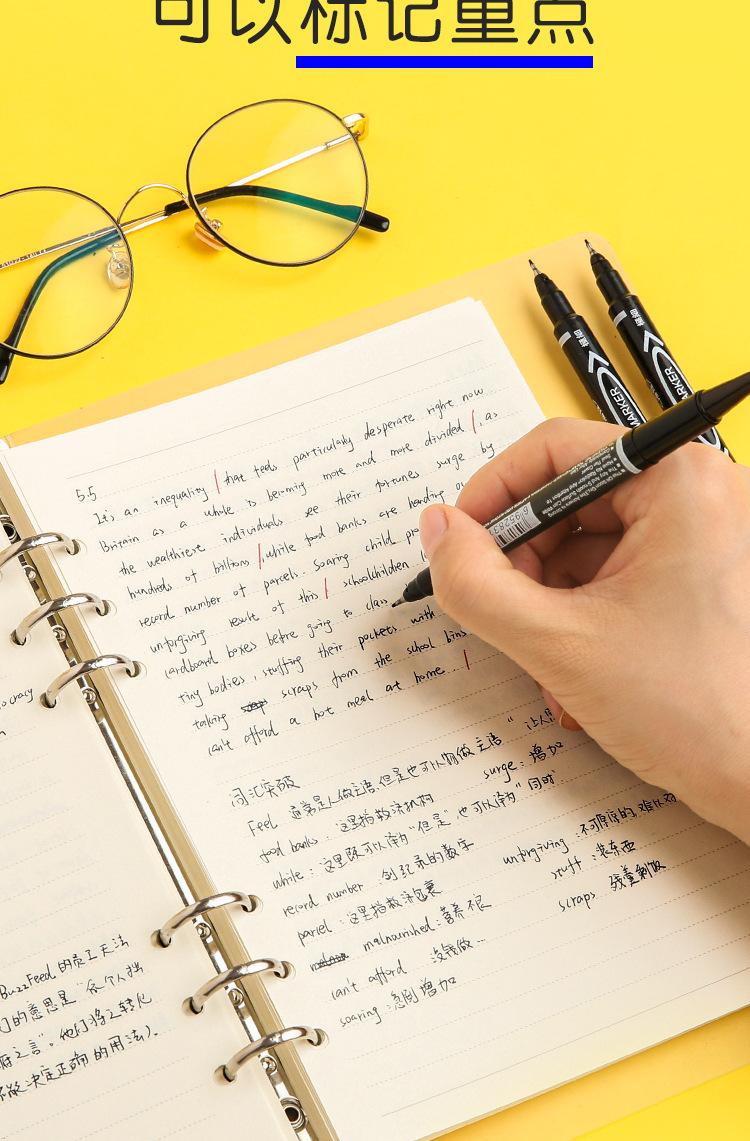 可以标记重点
5.5
It's an inequality that feels particularly desperate right now
Britain as a whole is becoming more and more divided, as
the wealthiest individuals see their fortunes surge by
hundreds of billions, while food banks are handing
record number of parcels. Soaring child
unforgiving result of this schoolchildren
cardboard boxes before going to class
tiny bodies, stuffing their pockets with
taking scraps from the school bins
can't afford a hot meal at home.
词汇突破
Feel 通常是人做主语,但是也可以物做主语"
food banks: 这里指救济机构 surge: 增加
while: 这里既可以译为"但是",也可以译为"同时".
record number 创纪录的数字 unforgiving 不可原谅的,难以对
parcel: 这里指救济包裹 stuff: 装东西
malnourished: 营养不良 scraps 残羹剩饭
can't afford 没钱做…
soaring: 急剧增加
BuzzFeed 的员工无法
们的意思是"各个人类
之言". 他们将之转化
决定正确的用法).
MARKER
MARKER